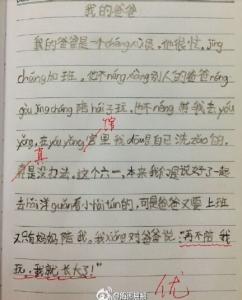 我的爸爸
我的爸爸是一个chángʌ民,他很忙,jīng
cháng加班,他不néng xiàng别人的爸爸néng
gòu jīng cháng陪hái子玩,他不néng 带我去yóu
yǒng,去yóu yǒng 馆里我dōu是自己洗zǎo的,
真是没办法。这个六一,本来我们说好了一起
去hǎi洋guǎn看小hǎi tún的,可是爸爸又要上班
又只有妈妈陪我。我xiǎng对爸爸说:"再不陪我
玩,我就长大了!"
优
@海峡导报